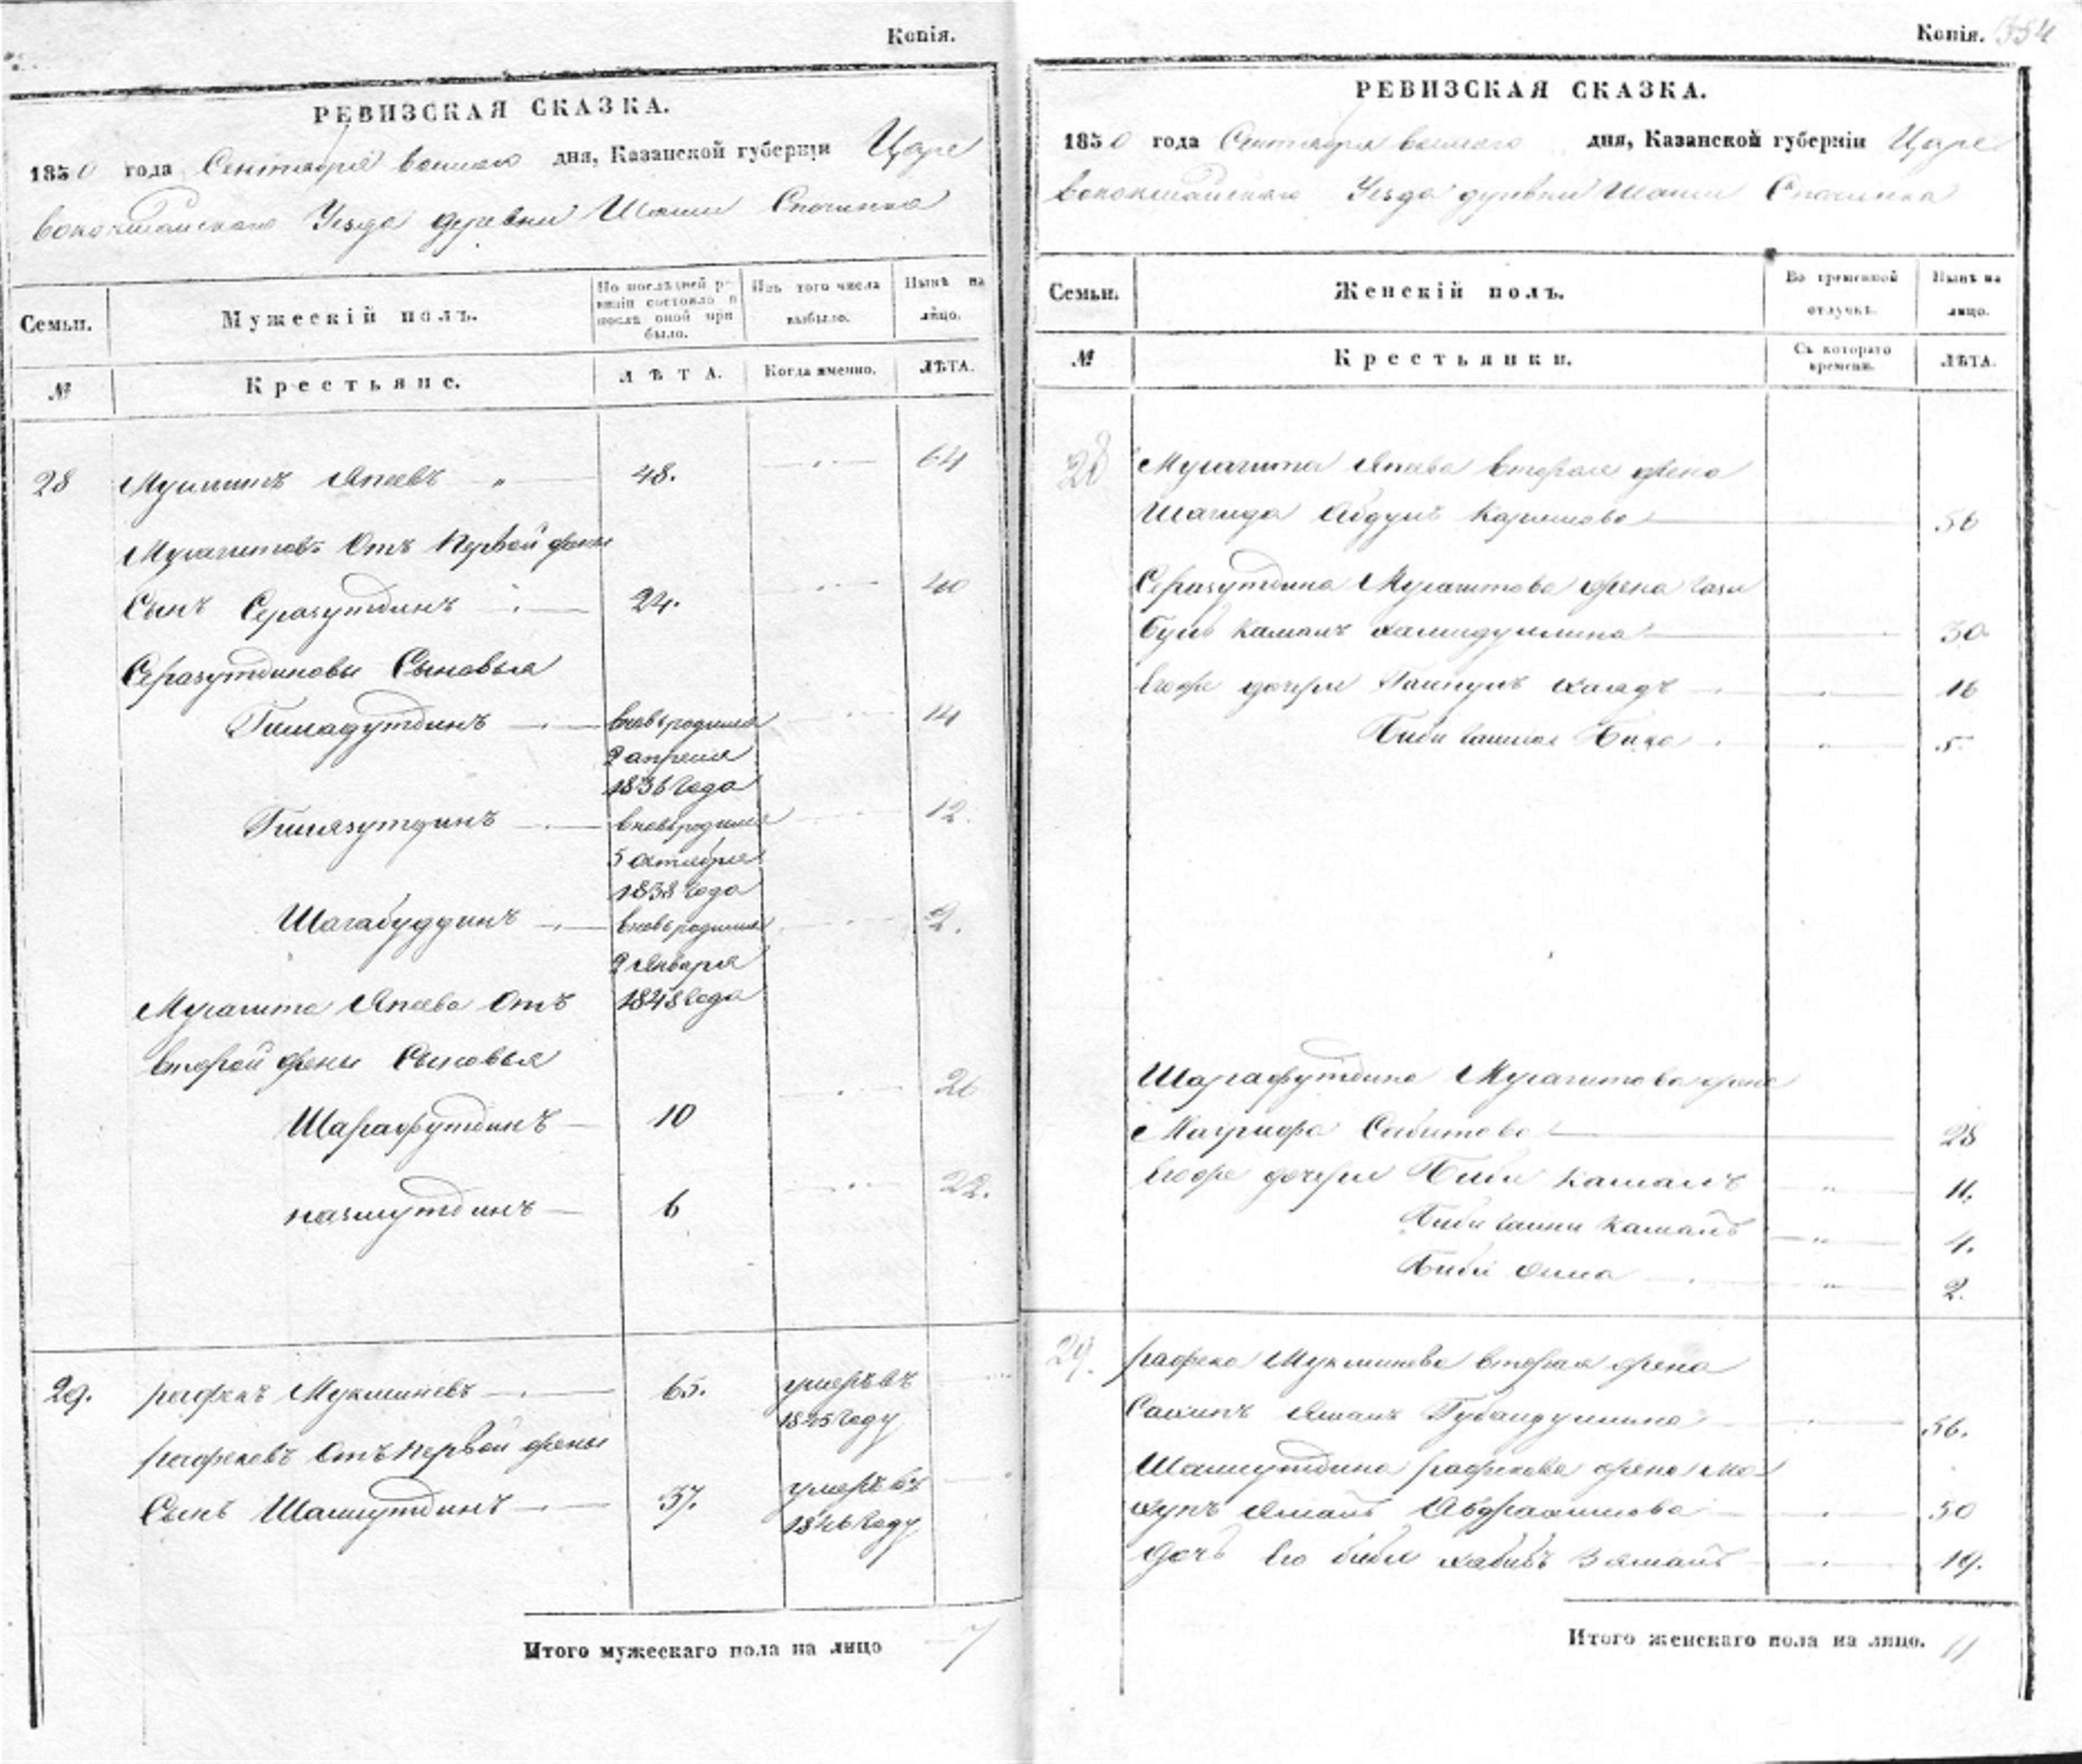 Копія.
РЕВИЗСКАЯ СКАЗКА.
1850 года Сентября дня, Казанской губерніи Царе
вококшайскаго Уезда деревни Шоши Спочинка
Семьи.
Мужескій полъ.
По послѣдней ре-
визіи состояло и
послѣ оной при
было.
Изъ того числа
выбыло.
Нынѣ на
лицо.
№
Крестьяне.
ЛѢТА.
Когда именно.
ЛѢТА.
28 Япаевъ 48. 64
Мугашитовъ Отъ первой жены
Сынъ Серазутдинъ 24. 40
Серазутдиновы Сыновья
Гимадутдинъ вновьродился 14
2 апреля
1836 года
Гилязутдинъ вновьродился 12.
5 октября
1838 года
Шагабуддинъ вновьродился 2.
2 января
Мугашита Япаева Отъ 1848 года
второй жены Сыновья
Шарафутдинъ 10 26
назмутдинъ 6 22.
29. рафекъ Мукминевъ 65. умеръ въ
1845 году
рафековъ Отъ первой жены
Сынъ Шамшутдинъ 37. умеръ въ
1846 году
Итого мужескаго пола на лицо 7
Копія. 354
РЕВИЗСКАЯ СКАЗКА.
1850 года Сентября дня, Казанской губерніи Царе
вококшайскаго Уезда деревни Шоши Спочинка
Семьи.
Женскій полъ.
Во временной
отлучкѣ.
Нынѣ на
лицо.
№
Крестьянки.
Съ котораго
времени.
ЛѢТА.
28 Мугашита Япаева вторая жена
Шагида Абдулъ Каримова 56
Серазутдина Мугашитова жена
Камалъ хамидуллина 30
Егоже дочери 16
Биби 5
Шарафутдина Мугашитова жена
Сабитова 28
Егоже дочери Биби Камалъ 11.
Биби Камалъ 4.
Биби 2.
29. рафека Мукминева вторая жена
Ямалъ Губайдуллина 56.
Шамшутдина рафекова жена Ма
Ямалъ Абдрахимова 50
дочь Его биби хабибъ Зямалъ 19.
Итого женскаго пола на лицо. 11